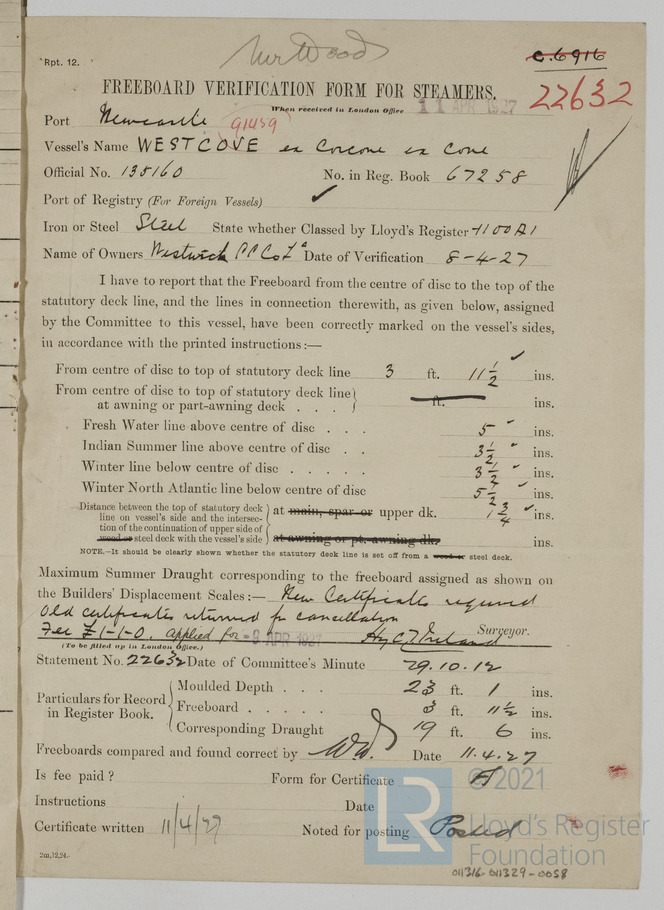 Rpt. 12.
Mr Wood
c.6916
FREEBOARD VERIFICATION FORM FOR STEAMERS.
22632
When received in London Office 11 APR 1927
Port Newcastle 91459
Vessel's Name WESTCOVE ex Corcove ex Cove
Official No. 135160 No. in Reg. Book 67258
Port of Registry (For Foreign Vessels) ✓
Iron or Steel Steel State whether Classed by Lloyd's Register +100A1
Name of Owners Westwick Co Ld Date of Verification 8-4-27
I have to report that the Freeboard from the centre of disc to the top of the
statutory deck line, and the lines in connection therewith, as given below, assigned
by the Committee to this vessel, have been correctly marked on the vessel's sides,
in accordance with the printed instructions:—
From centre of disc to top of statutory deck line 3 ft. 11½ ins.
From centre of disc to top of statutory deck line
at awning or part-awning deck . . . ft. ins.
Fresh Water line above centre of disc . . . 5 ins.
Indian Summer line above centre of disc . . 3½ ins.
Winter line below centre of disc . . . . . 3½ ins.
Winter North Atlantic line below centre of disc 5½ ins.
Distance between the top of statutory deck
line on vessel's side and the intersec-
tion of the continuation of upper side of
wood or steel deck with the vessel's side
at main, spar or upper dk. 1¾ ins.
at awning or pt. awning dk. ins.
NOTE.—It should be clearly shown whether the statutory deck line is set off from a wood or steel deck.
Maximum Summer Draught corresponding to the freeboard assigned as shown on
the Builders' Displacement Scales:— New Certificates required
Old certificates returned for cancellation
Fee £1-1-0. applied for -9 APR 1927 Surveyor.
(To be filled up in London Office.)
Statement No. 22632 Date of Committee's Minute 29.10.12
Particulars for Record
in Register Book.
Moulded Depth . . . 23 ft. 1 ins.
Freeboard . . . . . 3 ft. 11½ ins.
Corresponding Draught 19 ft. 6 ins.
Freeboards compared and found correct by Date 11.4.27
Is fee paid? Form for Certificate
Instructions Date
Certificate written 11/4/27 Noted for posting Posted
2m,12,24.
© 2021
LR
Lloyd's Register
Foundation
011316-011329-0058